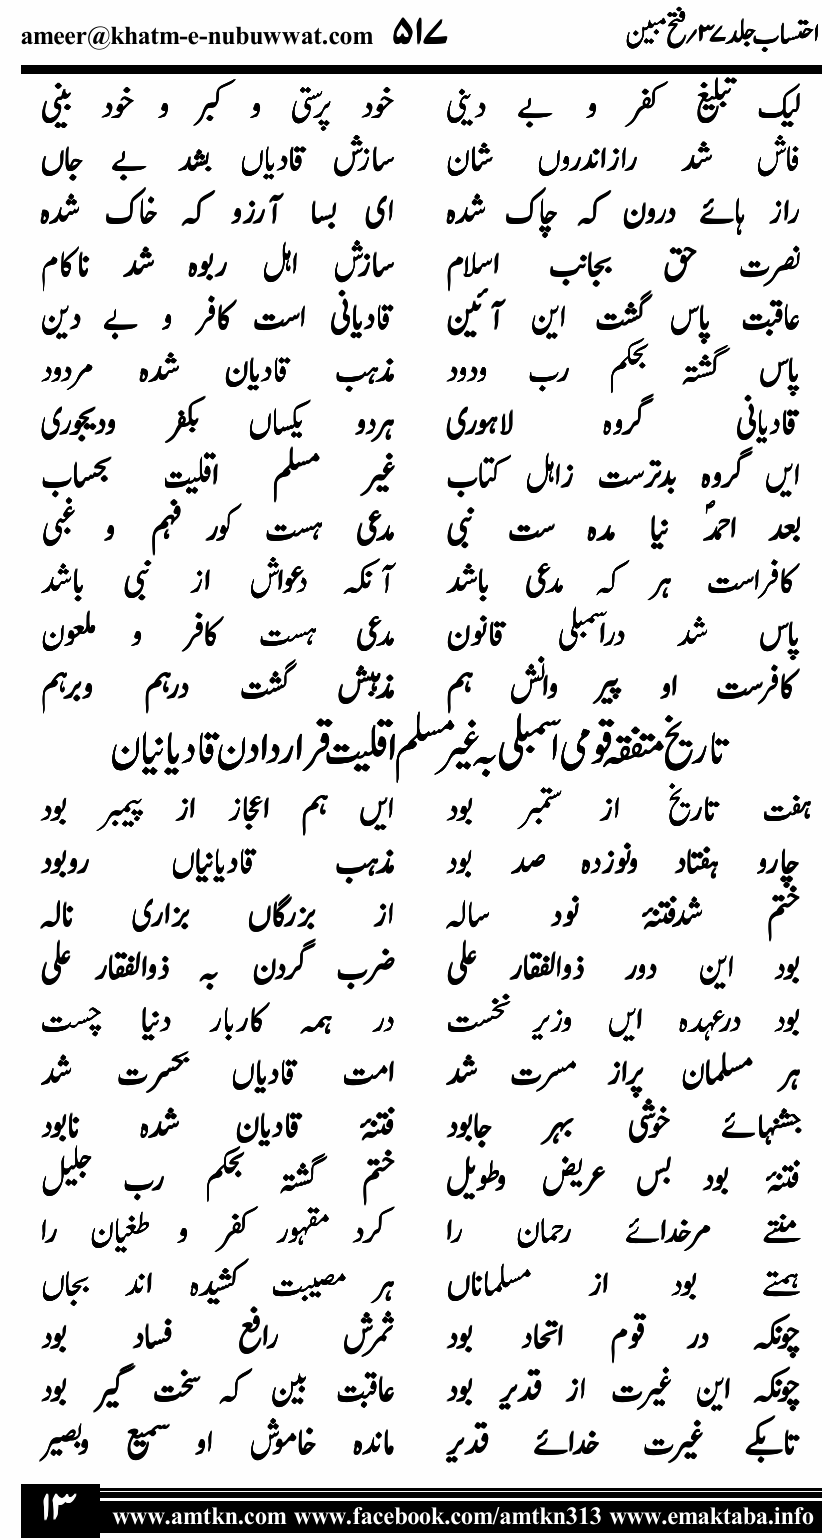 احتساب جلد ۳۷ / فتح مبین ۵۱۷ ameer@khatm-e-nubuwwat.com
لیک تبلیغ کفر و بے دینی خود پرستی و کبر و خود بینی
فاش شد رازاندروں شان سازش قادیاں بشد بے جاں
راز ہائے درون کہ چاک شدہ ای بسا آرزو کہ خاک شدہ
نصرت حق بجانب اسلام سازش اہل ربوہ شد ناکام
عاقبت پاس گشت این آئین قادیانی است کافر و بے دین
پاس گشتہ بحکم رب ودود مذہب قادیان شدہ مردود
قادیانی گروہ لاہوری ہردو یکساں بکفر ودیجوری
ایں گروہ بدترست زاہل کتاب غیر مسلم اقلیت بحساب
بعد احمدؐ نیا مدہ ست نبی مدعی ہست کور فہم و غبی
کافراست ہر کہ مدعی باشد آنکہ دعواش از نبی باشد
پاس شد دراسمبلی قانون مدعی ہست کافر و ملعون
کافرست او پیر وانش ہم مذہبش گشت درہم وبرہم
تاریخ متفقہ قومی اسمبلی بہ غیر مسلم اقلیت قرار دادن قادیانیان
ہفت تاریخ از ستمبر بود ایں ہم اعجاز از پیمبر بود
چارو ہفتاد ونوزدہ صد بود مذہب قادیانیاں روبود
ختم شدفتنۂ نود سالہ از بزرگاں بزاری نالہ
بود این دور ذوالفقار علی ضرب گردن بہ ذوالفقار علی
بود درعہدہ ایں وزیر نخست در ہمہ کاربار دنیا چست
ہر مسلمان پراز مسرت شد امت قادیاں بحسرت شد
جشنہائے خوشی بہر جابود فتنۂ قادیان شدہ نابود
فتنۂ بود بس عریض وطویل ختم گشتہ بحکم رب جلیل
منتے مرخدائے رحمان را کرد مقہور کفر و طغیان را
ہمتے بود از مسلماناں ہر مصیبت کشیدہ اند بجاں
چونکہ در قوم اتحاد بود ثمرش رافع فساد بود
چونکہ این غیرت از قدیر بود عاقبت بین کہ سخت گیر بود
تابکے غیرت خدائے قدیر ماندہ خاموش او سمیع وبصیر
۱۳ www.amtkn.com www.facebook.com/amtkn313 www.emaktaba.info